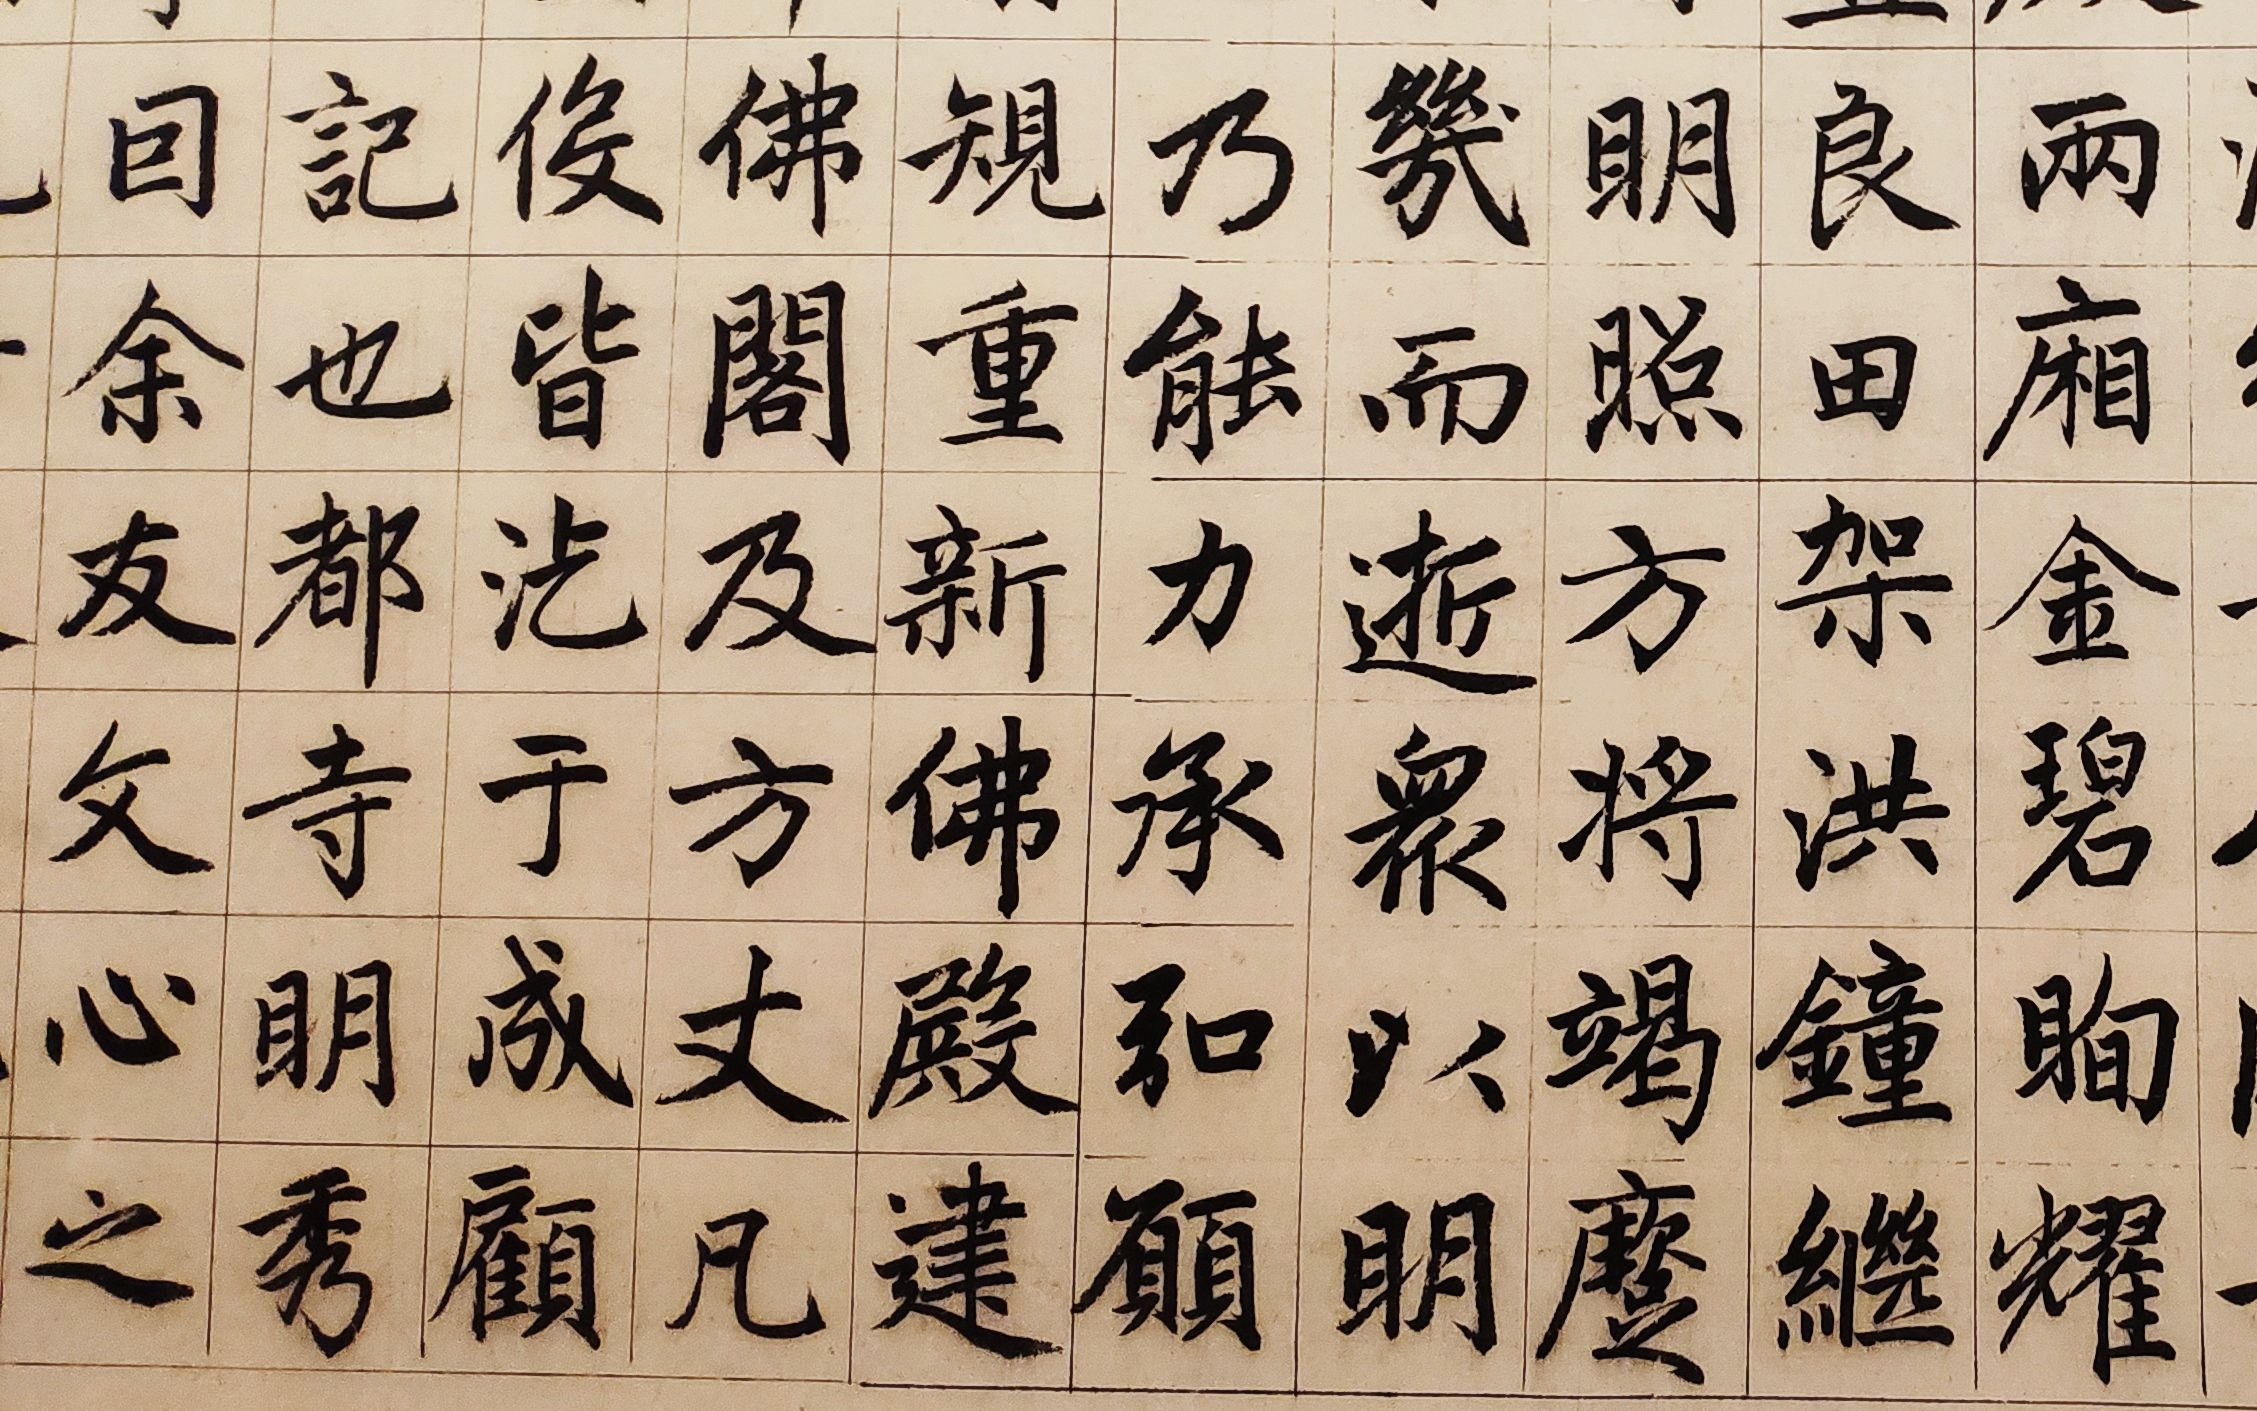 兩廂金碧眴耀
良田架洪鐘繼
明照方将竭蹷
幾而逝衆以明
乃能力承弘願
規重新佛殿建
佛閣及方丈凡
役皆汔于成顧
記也都寺明秀
曰余友文心之